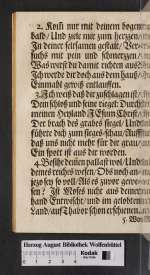 2. Kom̃ nur mit deinem bogen
bald/ Und ziele nur zum hertzen
In deiner seltsamen gestalt/ Ver-
suchs mit pein und schmertzen
Was wirst du damit richten aus
Ich werde dir doch aus dem hauß
Einmahl gewiß entlauffen.
3. Ich weiß daß dir zuschlagen ist
Dein schloß und seine riegel: Durch
meinen Heyland JEsum Christ
Der brach des grabes siegel/ Und
führte dich zum sieges-schau/ Auff
daß uns nicht mehr für dir grau/
Ein spott ist aus dir worden.
4. Besihe deinen pallast wol/ Und
deines reiches wesen/ Obs noch an-
jezo sey so voll/ Als es zuvor gewe-
sen? Ist Moses nicht aus deiner
hand Entwischt/ und im gelobten
Land/ auf Thabor schön erschienen
5. Wo
Herzog August Bibliothek Wolfenbüttel
Kodak